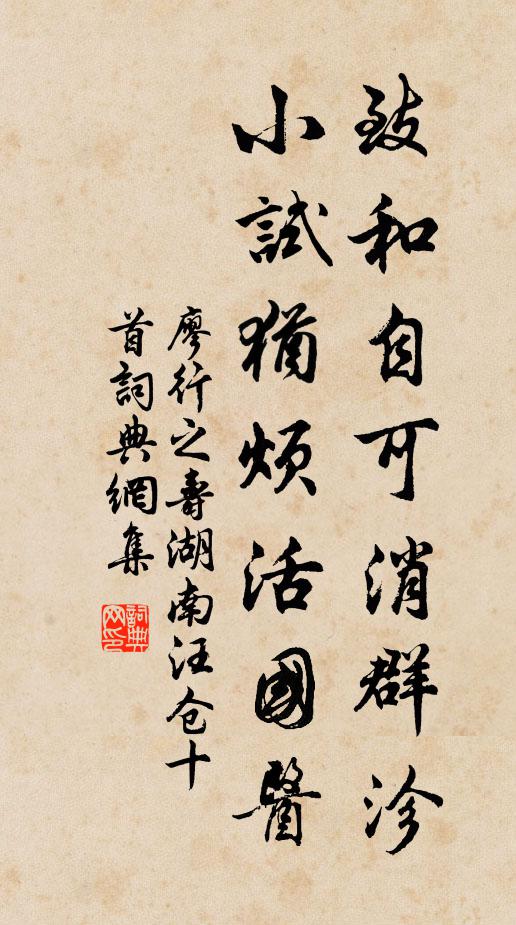 致和自可消群沴
小試猶煩活國醫
廖行之壽湖南汪仓十
首詞典網集
詞典
网印